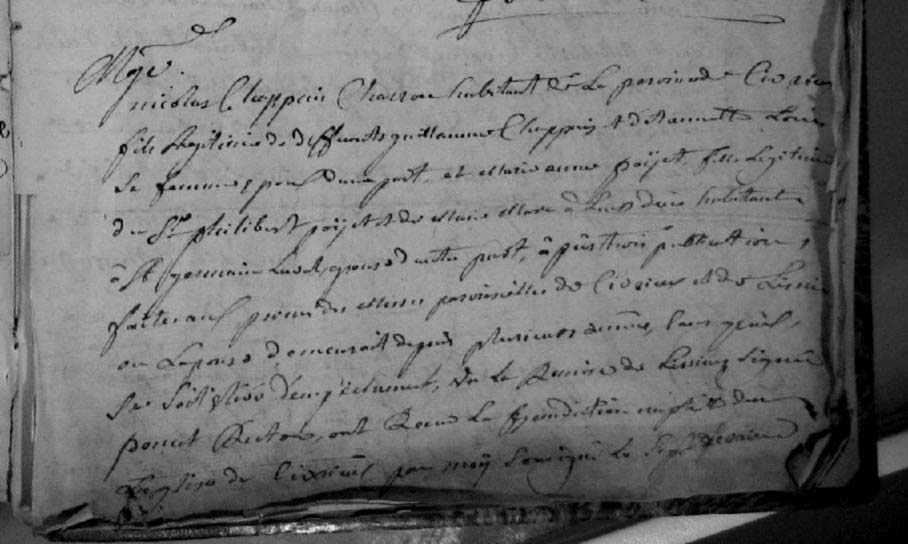 Mge.
nicolas Chappuis Charron habitant de La paroisse de Civrieux
fils Legitime de deffunts guillaume Chappuis et d'Annette Louis
Sa femme epoux d'une part, et Marie anne pojet, fille Legitime
du Sr. philibert pojet et de Marie
à St germain epouse d'autre part, après trois publications
faites aux prones des Messes paroissielles de Civrieux et de Lissieu
ou Lepouse demeuroit depuis plusieurs années, sans qu'il
Se Soit d'empechement, vu La Remise de Lissieu Signée
poncet Recteur, ont Recu La Benediction nuptialle dans
L'eglise de Civrieux par moy Soussigné Le Sept